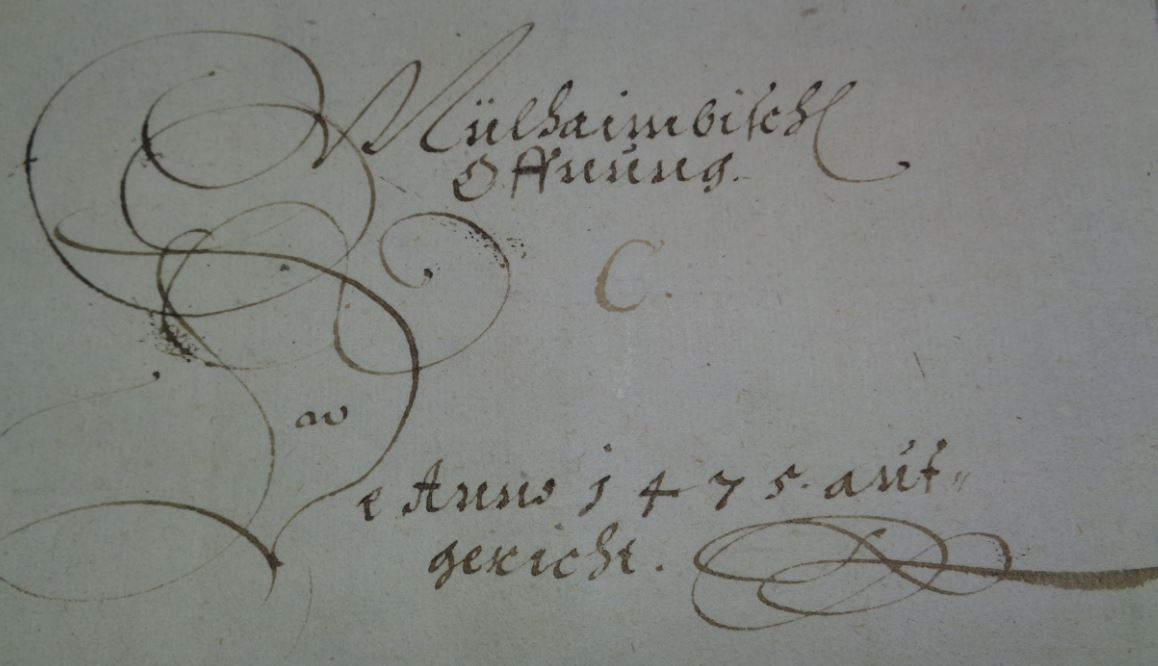 Mülhaimbisch
Offnung.
C.
w
De Anno 1475. auf=
gericht.